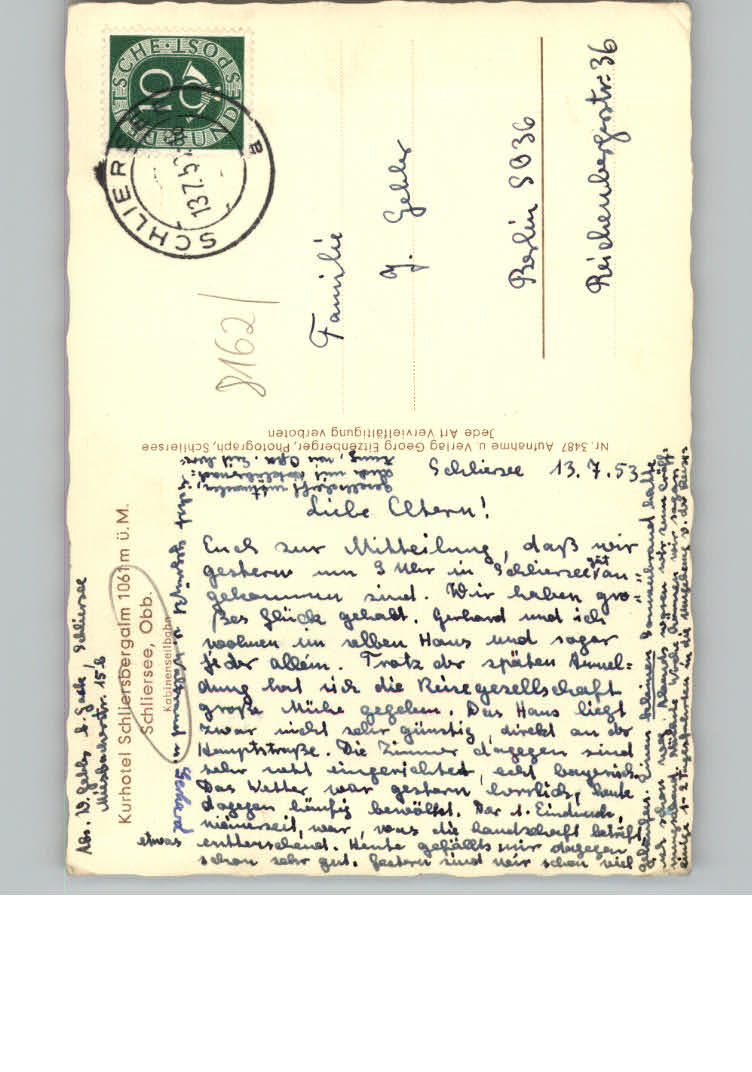 Kurhotel Schliersbergalm 1061 m ü. M.
Schliersee, Obb.
Kabinenseilbahn
Abs. W. Gehler b. Gack, Schliersee
Miesbacherstr. 15 b
Schliersee 13.7.53
Liebe Eltern!
Euch zur Mitteilung, daß wir
gestern um 9 Uhr in Schliersee gut an=
gekommen sind. Wir haben gro=
ßes Glück gehabt. Gerhard und ich
wohnen im selben Haus und sogar
jeder allein. Trotz der späten Anmel=
dung hat sich die Reisegesellschaft
große Mühe gegeben. Das Haus liegt
zwar nicht sehr günstig, direkt an der
Hauptstraße. Die Zimmer dagegen sind
sehr nett eingerichtet, echt bayerisch.
Das Wetter war gestern herrlich, heute
dagegen häufig bewölkt. Der 1. Eindruck,
meinerseits, war, was die Landschaft betrifft,
etwas enttäuschend. Heute gefällts mir dagegen
schon sehr gut. Gestern sind wir schon viel
gelaufen. Einen kleinen Sonnenbrand hatte
ich schon weg. Abends
Nr. 3487 Aufnahme u. Verlag Georg Eitzenberger, Photograph, Schliersee
Jede Art Vervielfältigung verboten
8162/
DEUTSCHE BUNDESPOST
10
SCHLIERSEE
13.7.53
a
Familie
Gehler
Berlin SO 36
Reichenbergerstr. 36